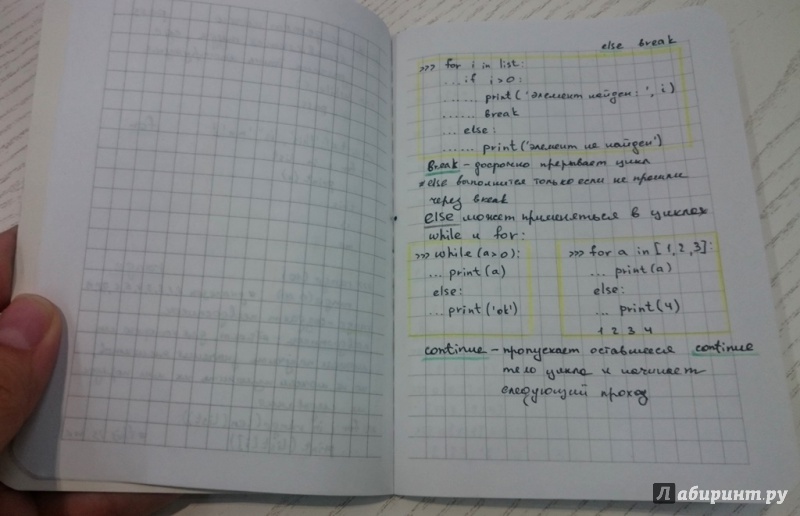 else break
>>> for i in list:
... if i>0:
...... print('элемент найден:', i)
...... break
... else:
...... print('элемент не найден')
break - досрочно прерывает цикл
*else выполнится только если не прошли
через break
else может применяться в циклах
while и for:
>>> while (a>0):
... print(a)
else:
... print('ok')
>>> for a in [1,2,3]:
... print(a)
else:
... print(4)
1 2 3 4
continue - пропускает оставшееся continue
тело цикла и начинает
следующий проход
Лабиринт.ру